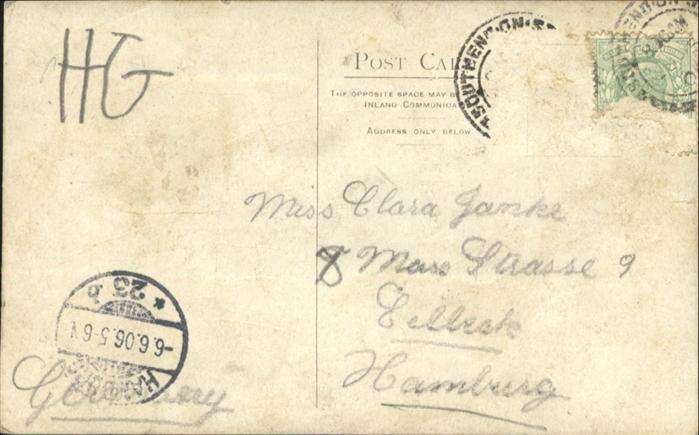 HG
POST
THE OPPOSITE SPACE MAY BE
INLAND COMMUNICA
ADDRESS ONLY BELOW
SOUTHEND-ON-S
Miss Clara Janke
Marx Strasse 9
Eilbeck
Hamburg
Germany
* 23 b
-6.6.06.5-6